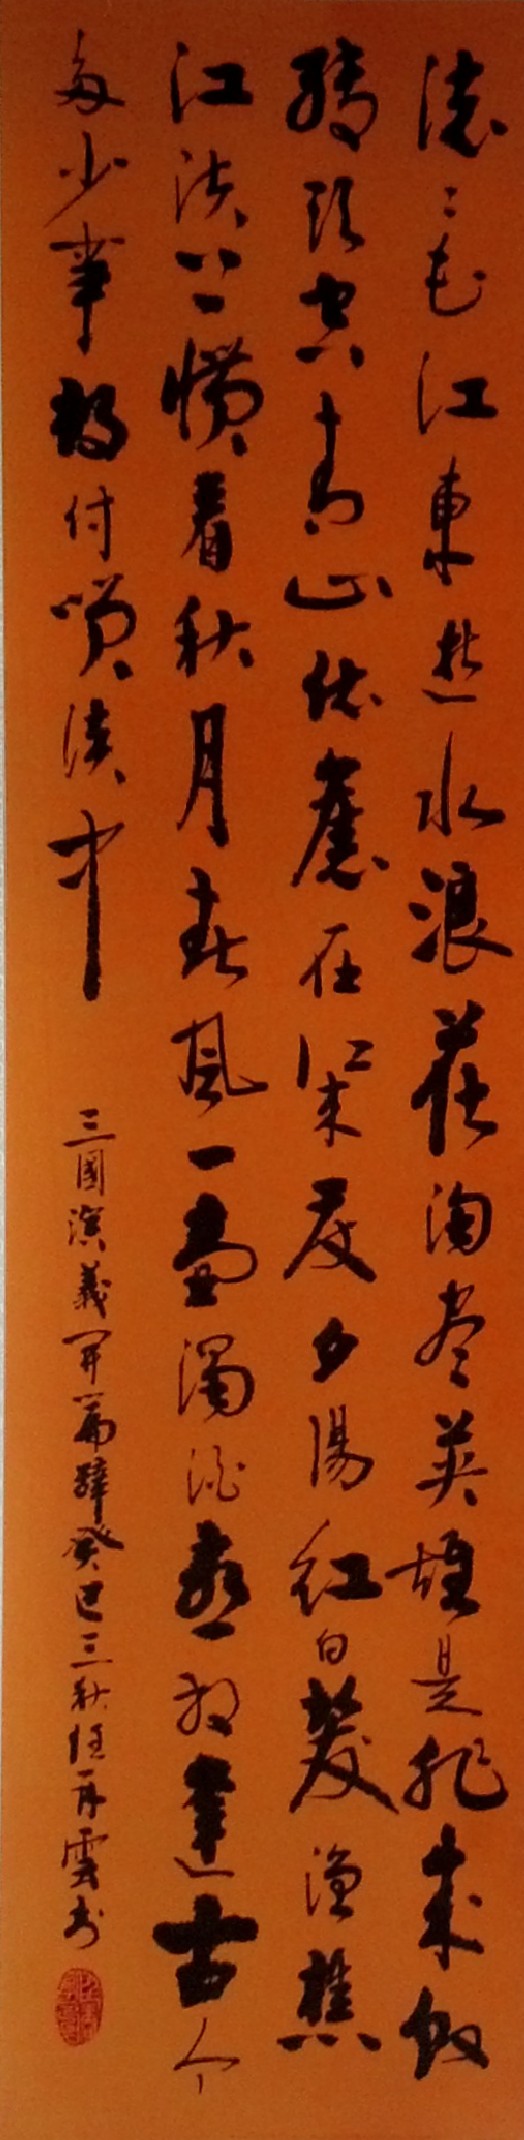 滚〻长江東逝水浪花淘尽英雄是非成敗
转头空青山依舊在幾度夕陽红白髮渔樵
江渚上慣看秋月春風一壺濁酒喜相逢古今
多少事都付笑谈中
三國演義开篇辭癸巳三秋任雲书